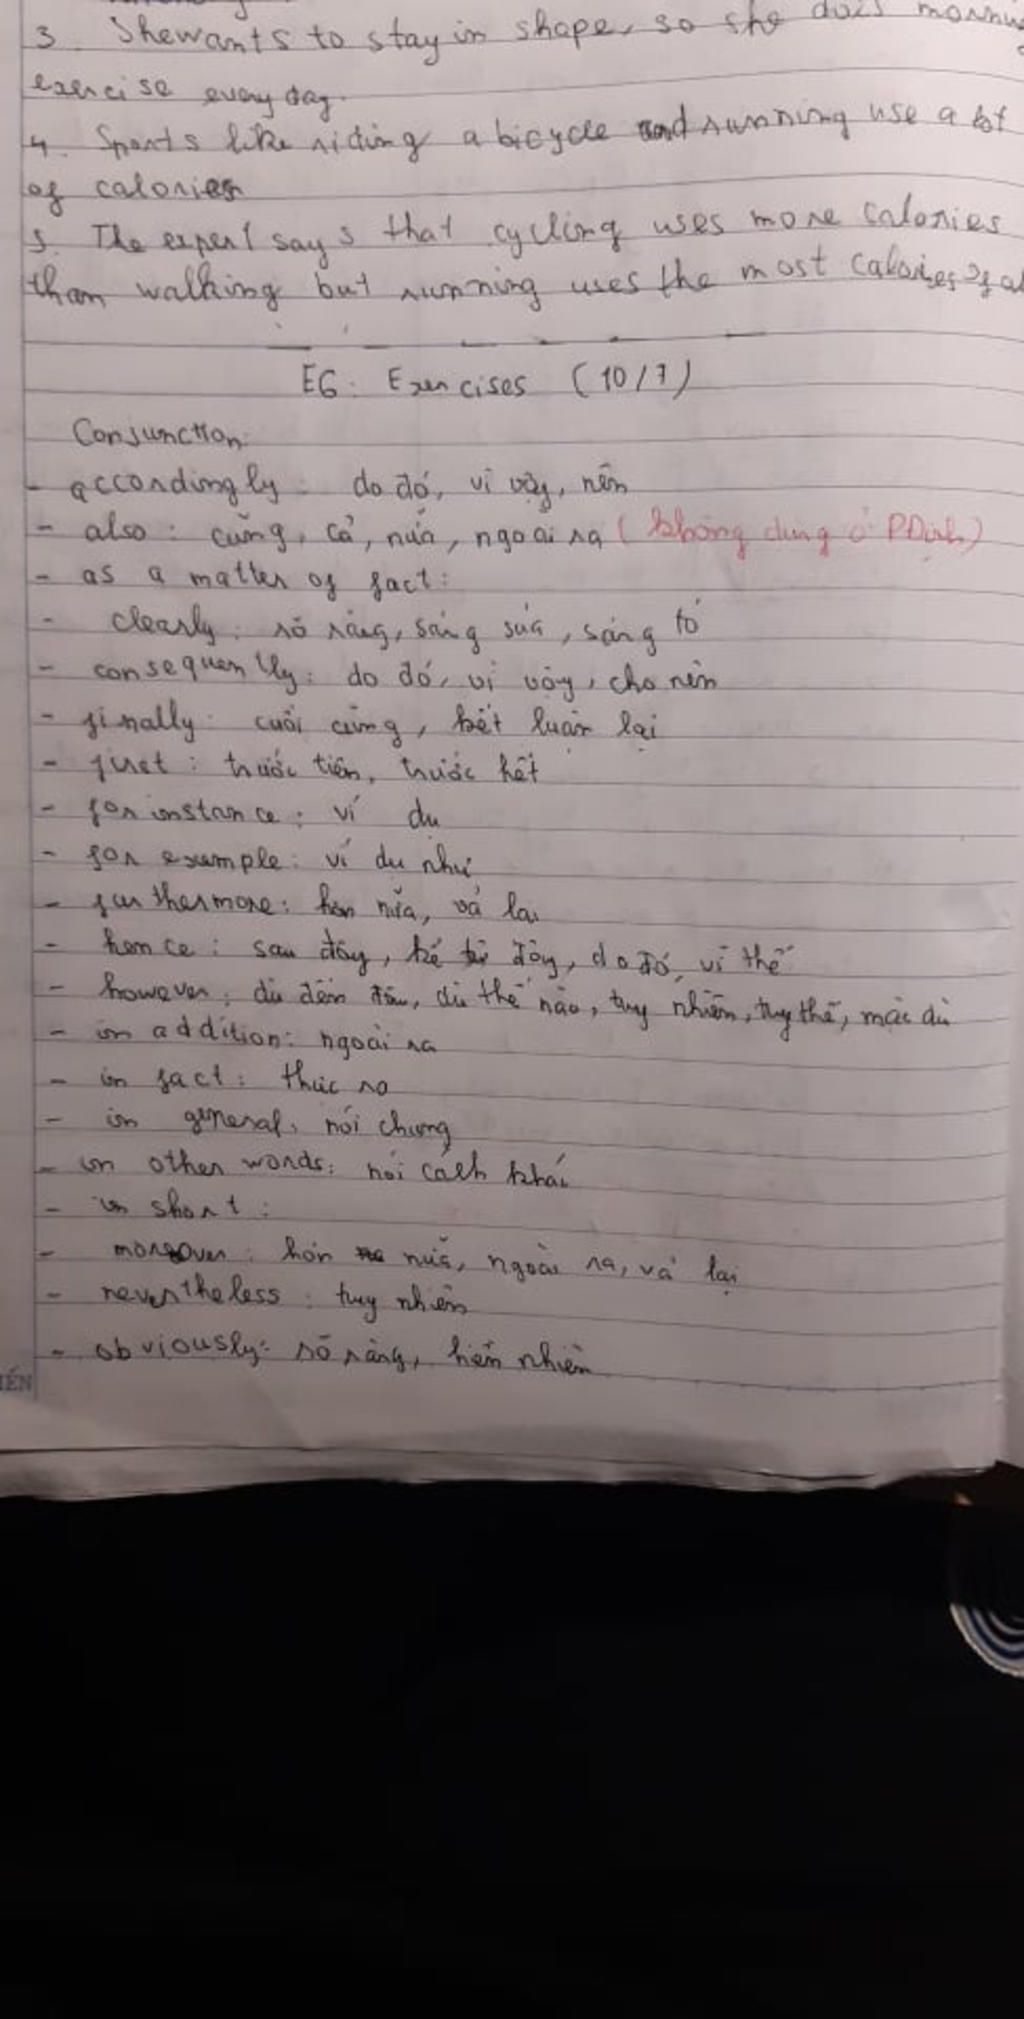 3. She wants to stay in shape, so she does morning
exercise every day.
4. Sports like riding a bicycle and running use a lot
of calories
5. The expert says that cycling uses more calories
than walking but running uses the most calories of al
E6: Exercises (10/7)
Conjunction:
- accordingly: do đó, vì vậy, nên
- also: cũng, cả, nữa, ngoài ra (không dùng ở PĐịnh)
- as a matter of fact:
- clearly: rõ ràng, sáng sủa, sáng tỏ
- consequently: do đó, vì vậy, cho nên
- finally: cuối cùng, kết luận lại
- first: trước tiên, trước hết
- for instance: ví dụ
- for example: ví dụ như
- furthermore: hơn nữa, vả lại
- hence: sau đây, kể từ đây, do đó, vì thế
- however: dù đến đâu, dù thế nào, tuy nhiên, tuy thế, mặc dù
- in addition: ngoài ra
- in fact: thực ra
- in general: nói chung
- in other words: nói cách khác
- in short:
- moreover: hơn nữa, ngoài ra, vả lại
- nevertheless: tuy nhiên
- obviously: rõ ràng, hiển nhiên